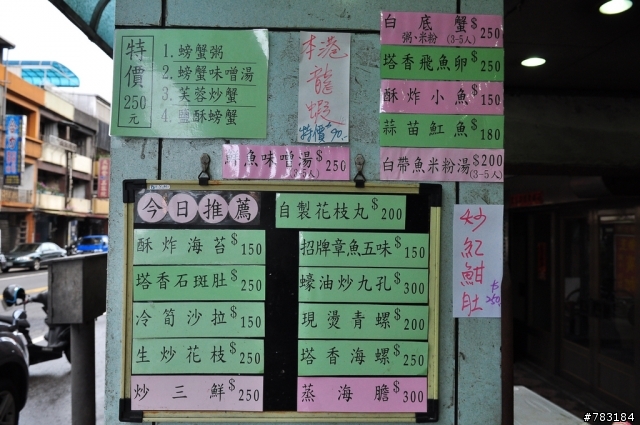 特價250元
1. 螃蟹粥
2. 螃蟹味噌湯
3. 芙蓉炒蟹
4. 鹽酥螃蟹
本港龍蝦
特價$90
白底蟹$250
粥、米粉(3-5人)
塔香飛魚卵$250
酥炸小魚$150
蒜苗魟魚$180
白帶魚米粉湯$200
(3-5人)
魚味噌湯$250
(3-5人)
今日推薦
自製花枝丸$200
酥炸海苔$150
招牌章魚五味$150
塔香石斑肚$250
蠔油炒九孔$300
冷筍沙拉$150
現燙青螺$200
生炒花枝$250
塔香海螺$250
炒三鮮$250
蒸海膽$300
炒紅魽肚
$250
#783184